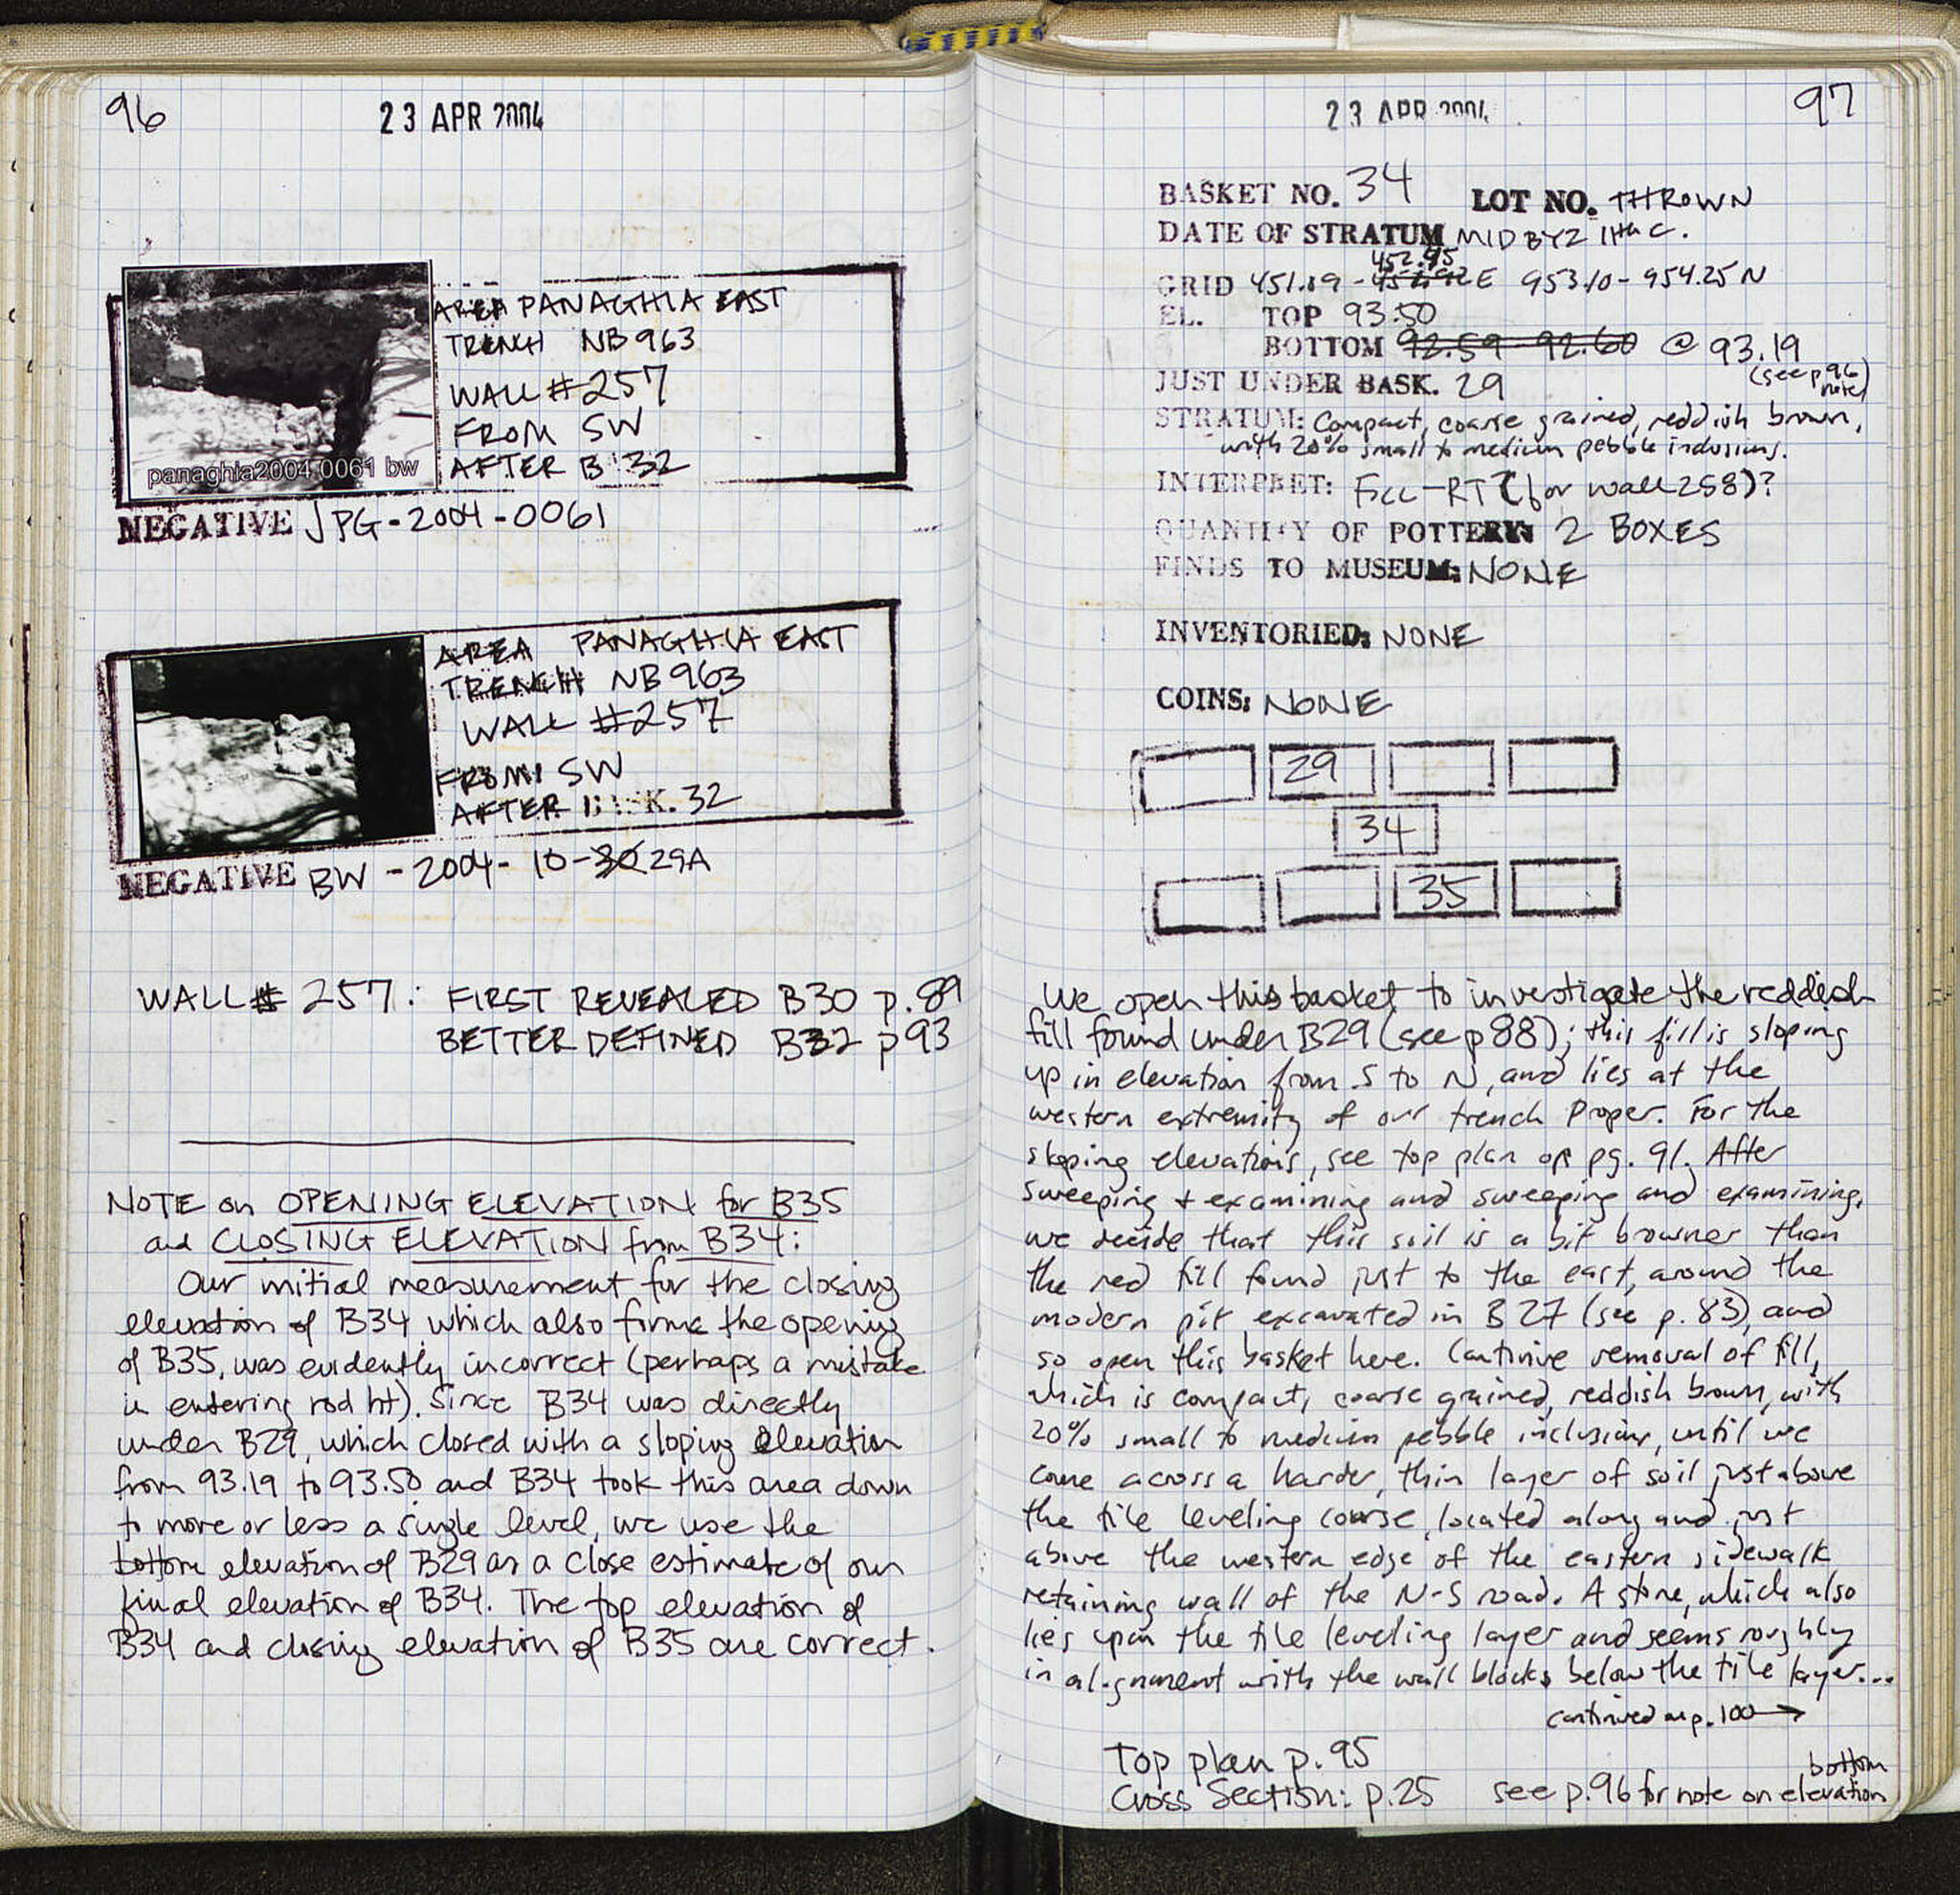 96
23 APR 2004
AREA PANAGHIA EAST
TRENCH NB 963
WALL #257
FROM SW
AFTER B 32
panaghia2004 0061 bw
NEGATIVE JPG-2004-0061
AREA PANAGHIA EAST
TRENCH NB 963
WALL #257
FROM SW
AFTER BASK. 32
NEGATIVE BW - 2004- 10-30 29A
WALL # 257: FIRST REVEALED B30 p.89
BETTER DEFINED B32 p93
NOTE on OPENING ELEVATION for B35
and CLOSING ELEVATION from B34:
Our initial measurement for the closing
elevation of B34 which also forms the opening
of B35, was evidently incorrect (perhaps a mistake
in entering rod ht). Since B34 was directly
under B29, which closed with a sloping elevation
from 93.19 to 93.50 and B34 took this area down
to more or less a single level, we use the
bottom elevation of B29 as a close estimate of our
final elevation of B34. The top elevation of
B34 and closing elevation of B35 are correct.
97
23 APR 2004
BASKET NO. 34 LOT NO. THROWN
DATE OF STRATUM MID BYZ 11th C.
452.95
GRID 451.19 - E 953.10 - 954.25 N
EL. TOP 93.50
BOTTOM 92.59 92.60 @ 93.19
(see p96 note)
JUST UNDER BASK. 29
STRATUM: Compact, coarse grained, reddish brown,
with 20% small to medium pebble inclusions.
INTERPRET: FILL-RT (for wall 258)?
QUANTITY OF POTTERY: 2 BOXES
FINDS TO MUSEUM: NONE
INVENTORIED: NONE
COINS: NONE
29
34
35
We open this basket to investigate the reddish
fill found under B29 (see p88); this fill is sloping
up in elevation from S to N, and lies at the
western extremity of our trench proper. For the
sloping elevations, see top plan on pg. 91. After
sweeping + examining and sweeping and examining,
we decide that this soil is a bit browner than
the red fill found just to the east, around the
modern pit excavated in B27 (see p. 83), and
so open this basket here. Continue removal of fill,
which is compact, coarse grained, reddish brown, with
20% small to medium pebble inclusions, until we
come across a harder, thin layer of soil just above
the tile leveling course, located along and just
above the western edge of the eastern sidewalk
retaining wall of the N-S road. A stone, which also
lies upon the tile leveling layer and seems roughly
in alignment with the wall blocks below the tile layer...
continued on p. 100 →
Top plan p. 95
Cross Section: p.25 see p.96 for note on bottom elevation